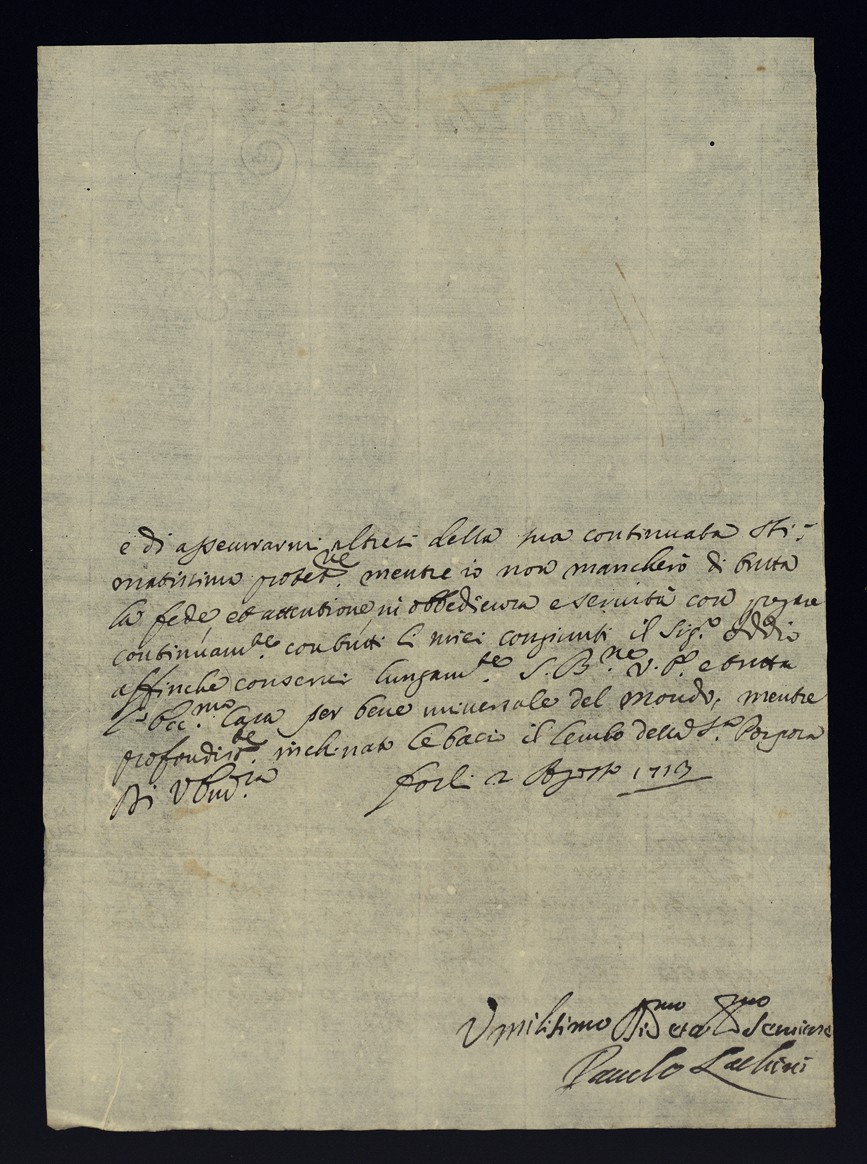 e di assecurarmi altresi della sua continuata sti:
matissima protet.ne mentre io non mancherò di tutta
la fede et attentione in obbedienza e servitù con pregare
continuam.te con tutti li miei congiunti il Sig.e Iddio
affinche conservi lungam.te S. B.ne V. E. e tutta
l' Ecc.ma Casa per bene universale del mondo, mentre
profondis.te inchinato le bacio il lembo della S.a Porpora
Di V. Em.za Forlì 2 Agosto 1713
Umilissimo Di Servitore
Paulo Lachini